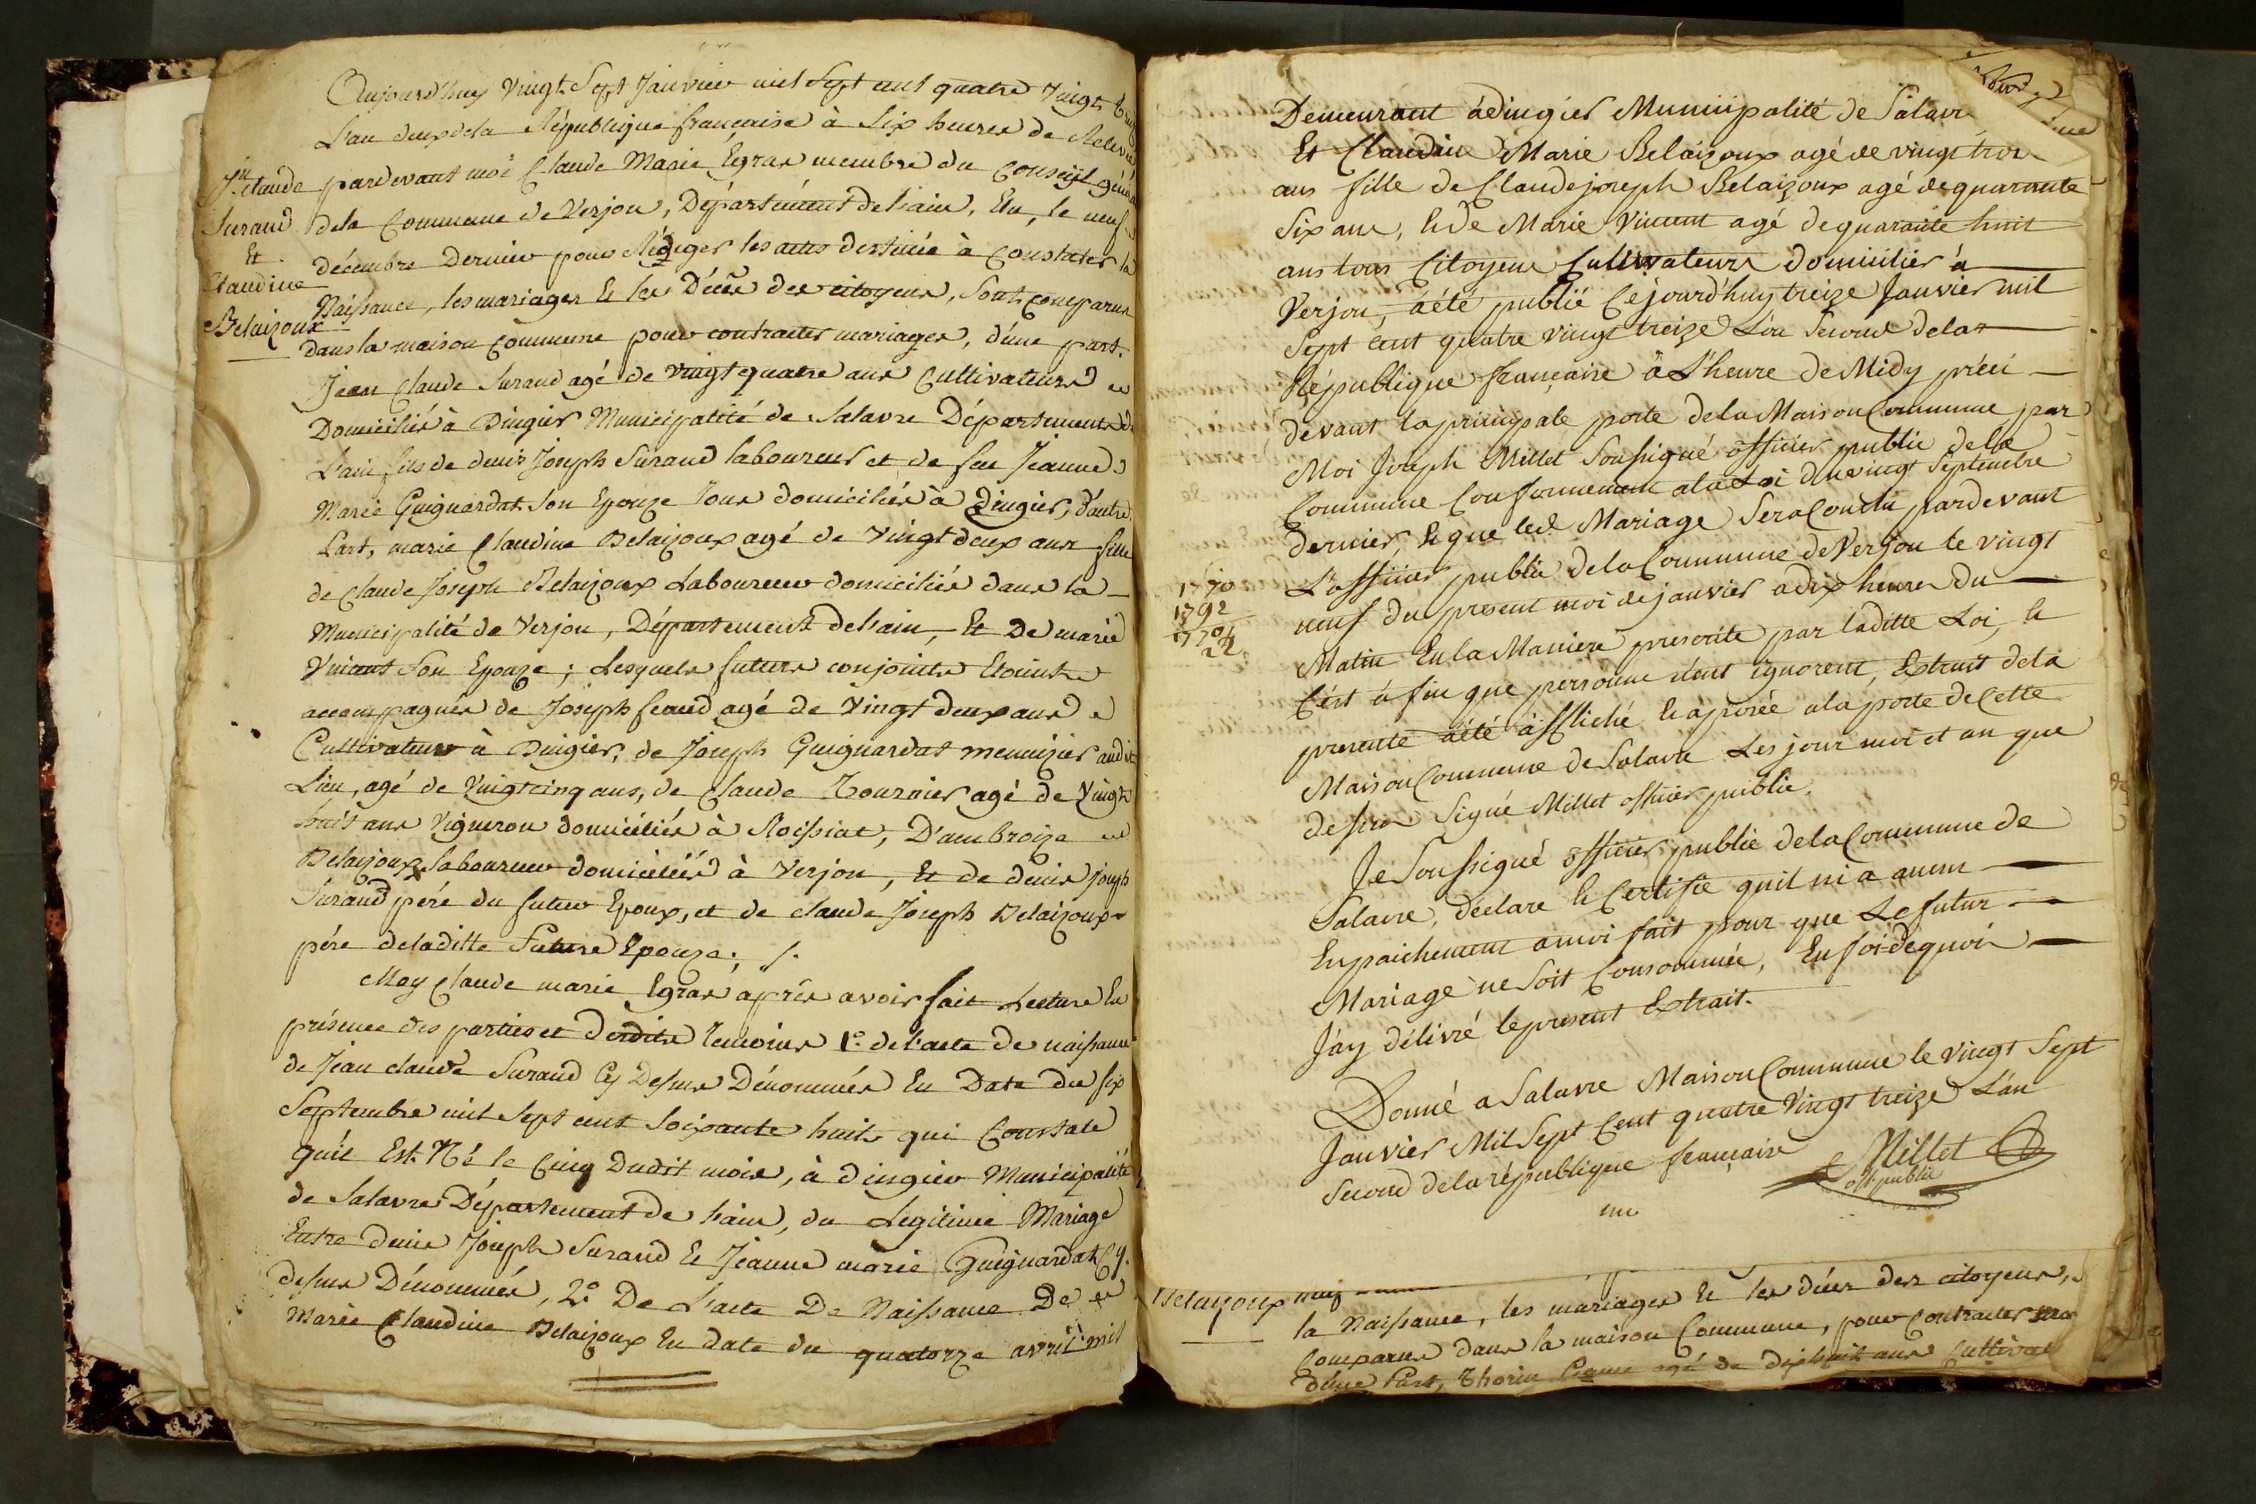 Aujourd'huy vingt Sept Janvier mil Sept cent quatre vingt
L'an deux de la République française à Six heures de Relevée
pardevant moi Claude Marie Egras membre du Conseil géné
de la Commune de Verjon, Département de Lain, Elu, le neuf
décembre Dernier pour Rédiger les actes destinés à Constater la
Naissance, les mariages Et les Décès des citoyens, Sont comparus
dans la maison commune pour contracter mariages, d'une part.
Jean Claude Suraud agé de vingt quatre ans Cultivateur
Domicilié à Dingier Municipalité de Salavre Département de
L'ain fils de denis Joseph Suraud laboureur et de feu Jeanne
Marie Guignardat Son Epouze Tous domiciliés à Dingier, d'autre
Part, marie Claudine Belaizoux agé de Vingt deux ans fille
de Claude Joseph Belaizoux Laboureur domicilié dans la
Municipalité de Verjon, Département de Lain, Et De marie
Vincent Son Epouze ; Lesquels futurs conjoints Etoients
accompagnés de Joseph feaud agé de Vingt deux ans
Cultivateur à Dingier, de Joseph Guignardat menuizier audit
Lieu, agé de Vingt cinq ans, de Claude Tournier agé de Vingt
huit ans Vigneron domicilié à Roissiat, D'ambroize
Belaizoux Laboureur domicilié à Verjon, Et de denis joseph
Suraud pére du futur Epoux, et de claude Joseph Belaizoux
pére de laditte Future Epouze ; /.
Moy Claude marie Egras après avoir fait Lecture En
présence des parties et desdits Temoins 1.° de L'acte de naissance
de Jean claude Suraud Cy Dessus Dénommés En Date du six
Septembre mil Sept cent Soixante huit qui Constate
qu'il Est Né le Cinq Dudit mois, à dingier Municipalité
de Salavre Département de Lain, du Legitime Mariage
Entre denis Joseph Suraud Et Jeanne marie Guignardat Cy.
dessus Dénommés, 2.° De L'acte De Naissance De
Marie Claudine Belaizoux En date du quatorze avril mil
Jn claude
Suraud
Et
Claudine
Belaizoux
Demeurant à dingier Municipalité de Salavre
Et Claudine Marie Belaizoux agé de vingt trois
ans fille de Claude joseph Belaizoux agé de quarante
Six ans, & de Marie Vincent agé de quarante huit
ans tous Citoyens Cultivateurs domicilier à
Verjon, a été publié Cejourd'huy treize Janvier mil
Sept cent quatre vingt treize L'an Second de la
République française à L'heure de Midy préci
devant la principale porte de la Maison Commune par
Moi Joseph Millet Soussigné officier public de la
Commune Conformement a la Loi du vingt Septembre
dernier, & que led. Mariage Sera Conclu pardevant
L'officier public de la Commune de Verjon le vingt
neuf du present moi de janvier a dix heures du
Matin En la Maniere prescrite par laditte Loi, &
C'est à fin que personne n'ent ignorent, Extrait de la
presente a été affliché & aposée a la porte de Cette
Maison Commune de Salavre Les jour moi et an que
dessus Signé Millet officier public.
Je Soussigné officier public de la Commune de
Salavre, déclare & Certifie quil ni a aucun
Enpaichement a moi fait pour que Le futur
Mariage ne Soit Consommée, En foi de quoi
J'ay délivré le present Extrait.
Donné a Salavre Maison Commune le vingt Sept
Janvier Mil Sept Cent quatre Vingt treize L'an
Second de la république française
Millet
off. public
1770
1792
1770
24
Belaizoux
la Naissance, les mariages Et les décès des citoyens,
Comparus dans la maison Commune, pour Contracter
d'une Part, Thorin agé de dix huit ans Cultivat